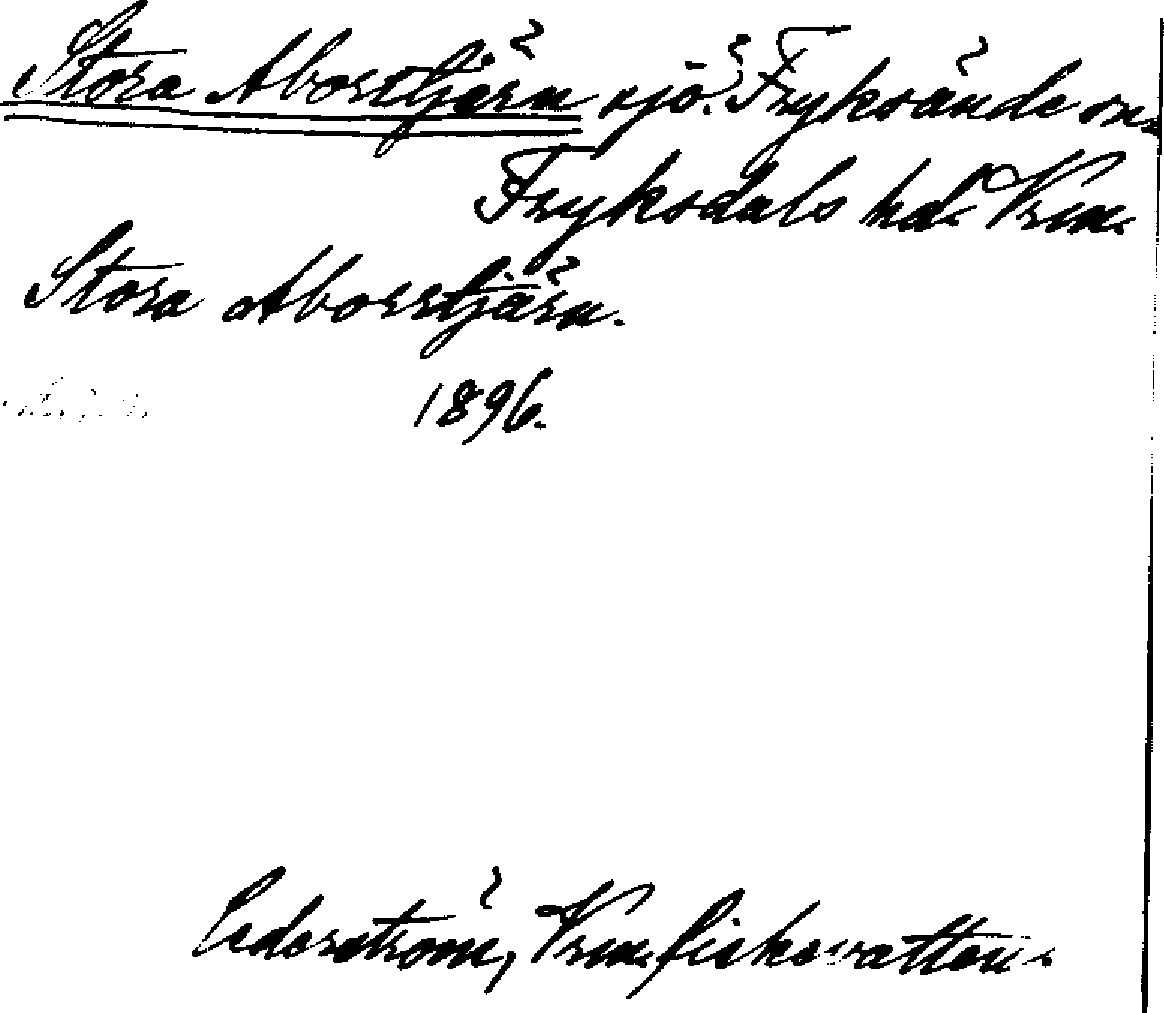 Stora Aborrtjärn sjö. Fryksände sn.
Fryksdals hd. Vrm.
Stora Aborrtjärn.
1896.
Cederström, Vrm. fiskevatten.